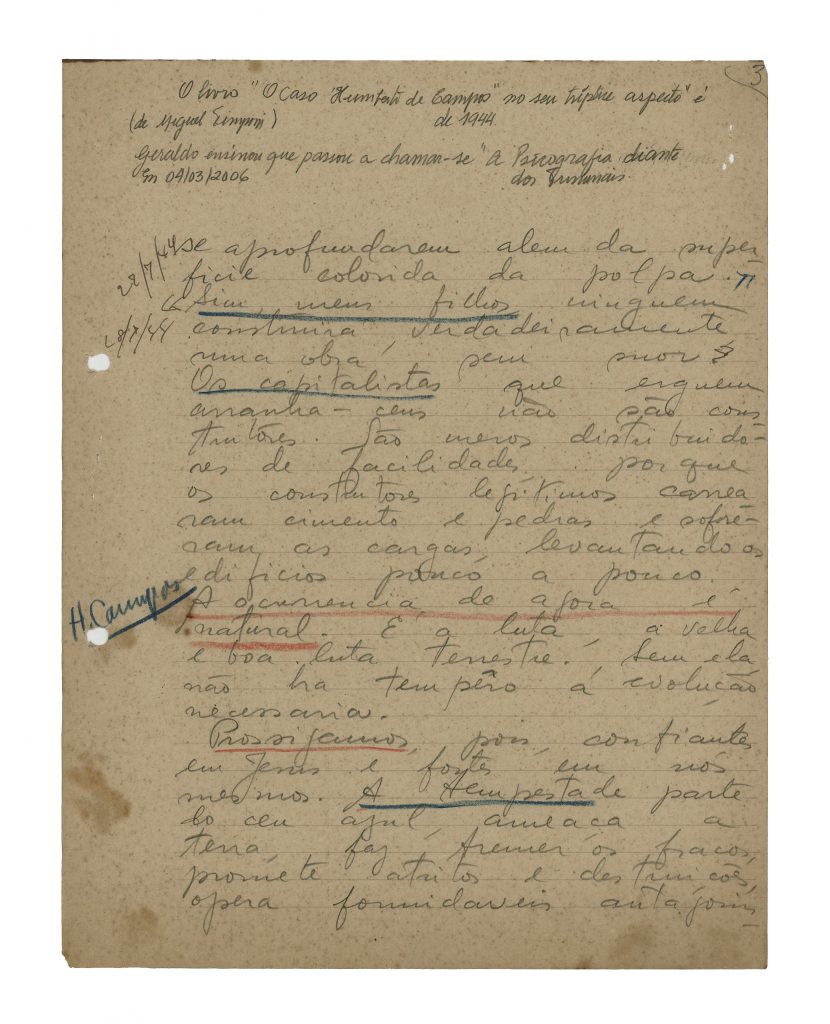 3
O livro "O Caso "Humberto de Campos" no seu tríplice aspecto" é
(de Miguel Timponi) de 1944.
Geraldo ensinou que passou a chamar-se "A Psicografia diante
Em 04/03/2006 dos Tribunais.
22/7/44 se aprofundarem alem da super
ficie colorida da polpa.
Sim, meus filhos ninguem
construirá, verdadeiramente
uma obra, sem suor
Os capitalistas que erguem
arranha-ceus não são cons
trutôres. São meros distribuido-
res de facilidades, porque
os construtores legítimos carrea
ram cimento e pedras e sofre-
ram as cargas, levantando os
edificios pouco a pouco.
H. Campos
A ocurrencia de agora é
natural. É a luta, a velha
e boa luta terrestre. Sem ela
não ha tempêro á evolução
necessaria.
Prossigamos, pois, confiantes
em Jesus e fortes em nós
mesmos. A tempestade parte
do ceu azul, ameaça a
terra, faz tremer os fracos,
promete atritos e destruicões,
opera formidaveis antagonis-